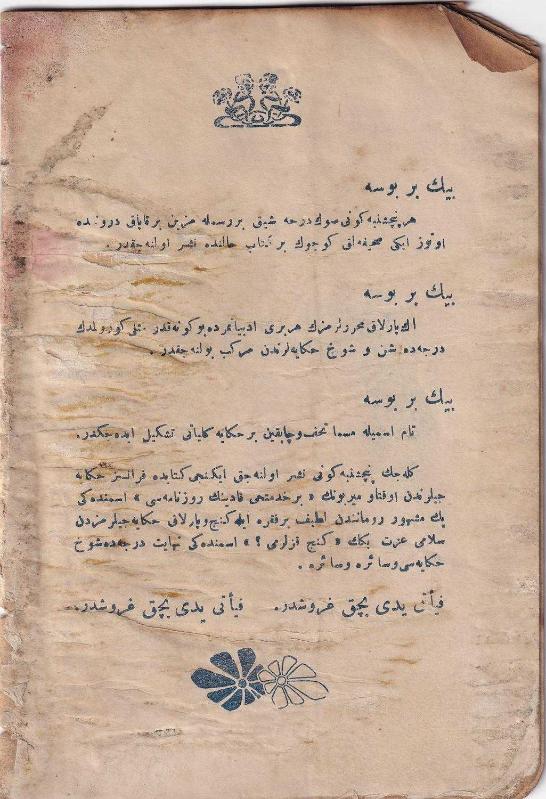 بیك بر بوسه
هر پنچشنبه كونی صوك درجه شیق بر رسمله مزین بر قاپاق دروننده
اوتوز ایكی صحیفه‌لق كوچوك بر كتاب حالنده نشر اولنه‌جقدر.
بیك بر بوسه
اك پارلاق محررلرمزك هر بری ادبیاتمزده بو كونه قدر مثلی كورولمدك
درجه‌ده شن و شوخ حكایه‌لرندن مركب بولنه‌جقدر.
بیك بر بوسه
تام اسمیله مسما تحف و چاپقین بر حكایه كلیاتی تشكیل ایده‌جكدر.
كله‌جك پنچشنبه كونی نشر اولنه‌جق ایكنجی كتابده فرانسز حكایه
جیلرندن اوقتاو میربونك « بر خدمتجی قادینك روزنامه‌سی » اسمنده‌كی
پك مشهور روماندن لطیف بر فقره ایله كنج و پارلاق حكایه‌جیلرمزدن
سلامی عزت بكك « كنج قزلرمی ؟ » اسمنده‌كی نهایت درجه‌ده شوخ
حكایه‌سی وسائره وسائره .
فیأتی یدی بچق غروشدر. فیأتی یدی بچق غروشدر...